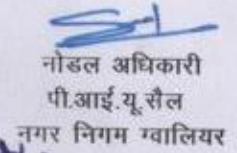 नोडल अधिकारी
पी.आई.यू.सैल
नगर निगम ग्वालियर